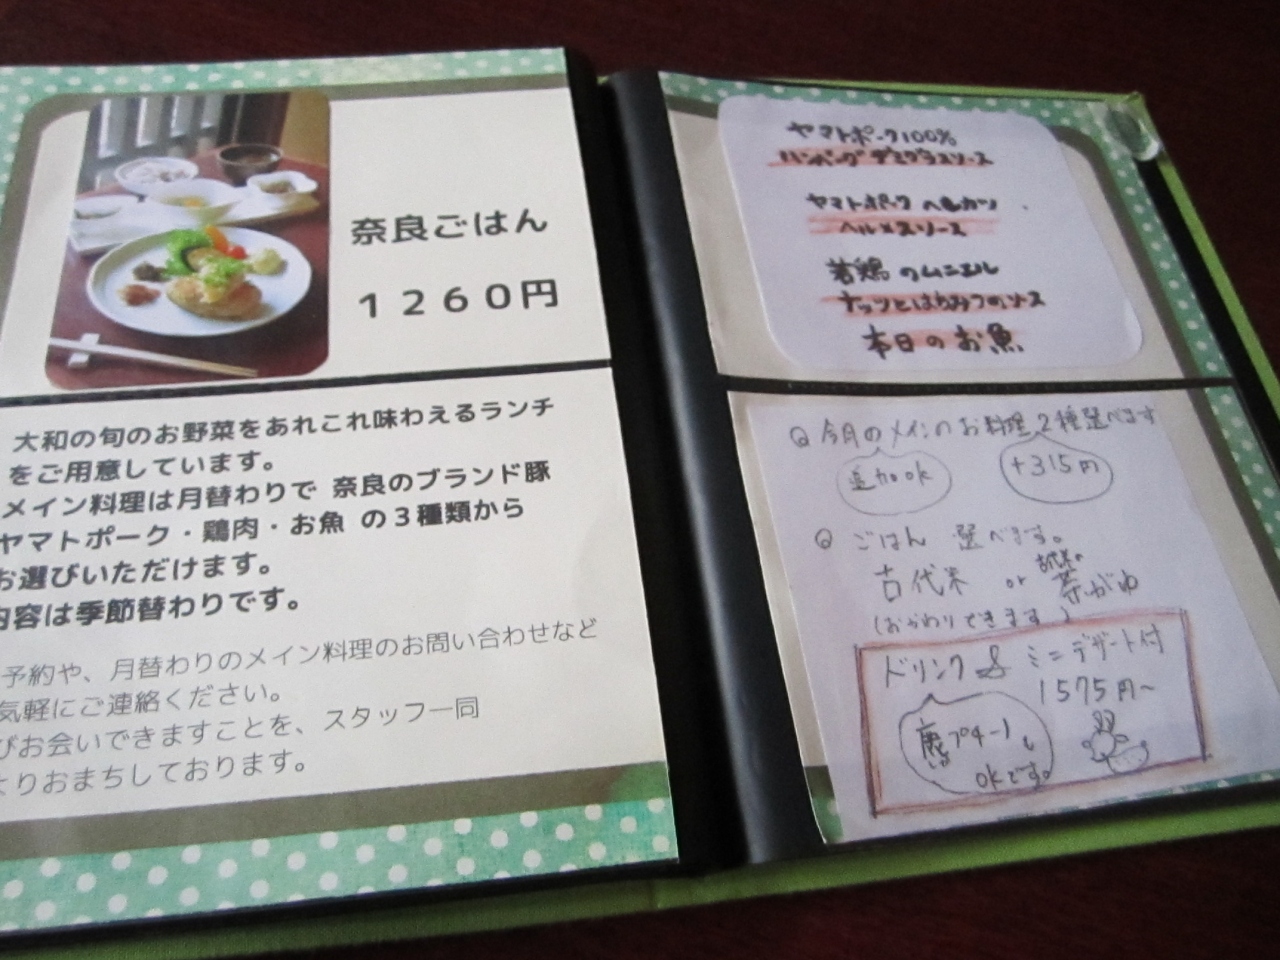 奈良ごはん
1260円
大和の旬のお野菜をあれこれ味わえるランチ
をご用意しています。
メイン料理は月替わりで 奈良のブランド豚
ヤマトポーク・鶏肉・お魚 の3種類から
お選びいただけます。
内容は季節替わりです。
予約や、月替わりのメイン料理のお問い合わせなど
気軽にご連絡ください。
びお会いできますことを、スタッフ一同
よりおまちしております。
ヤマトポーク100%
ハンバーグデミグラスソース
ヤマトポーク ヘルカツ
ヘルメスソース
若鶏のムニエル
ナッツとはちみつのソース
本日のお魚
今月のメインのお料理2種選べます
追加ok
+315円
ごはん 選べます。
古代米 or 古代米の茶がゆ
(おかわりできます)
ドリンク& ミニデザート付
1575円〜
鹿プチーノも
okです。